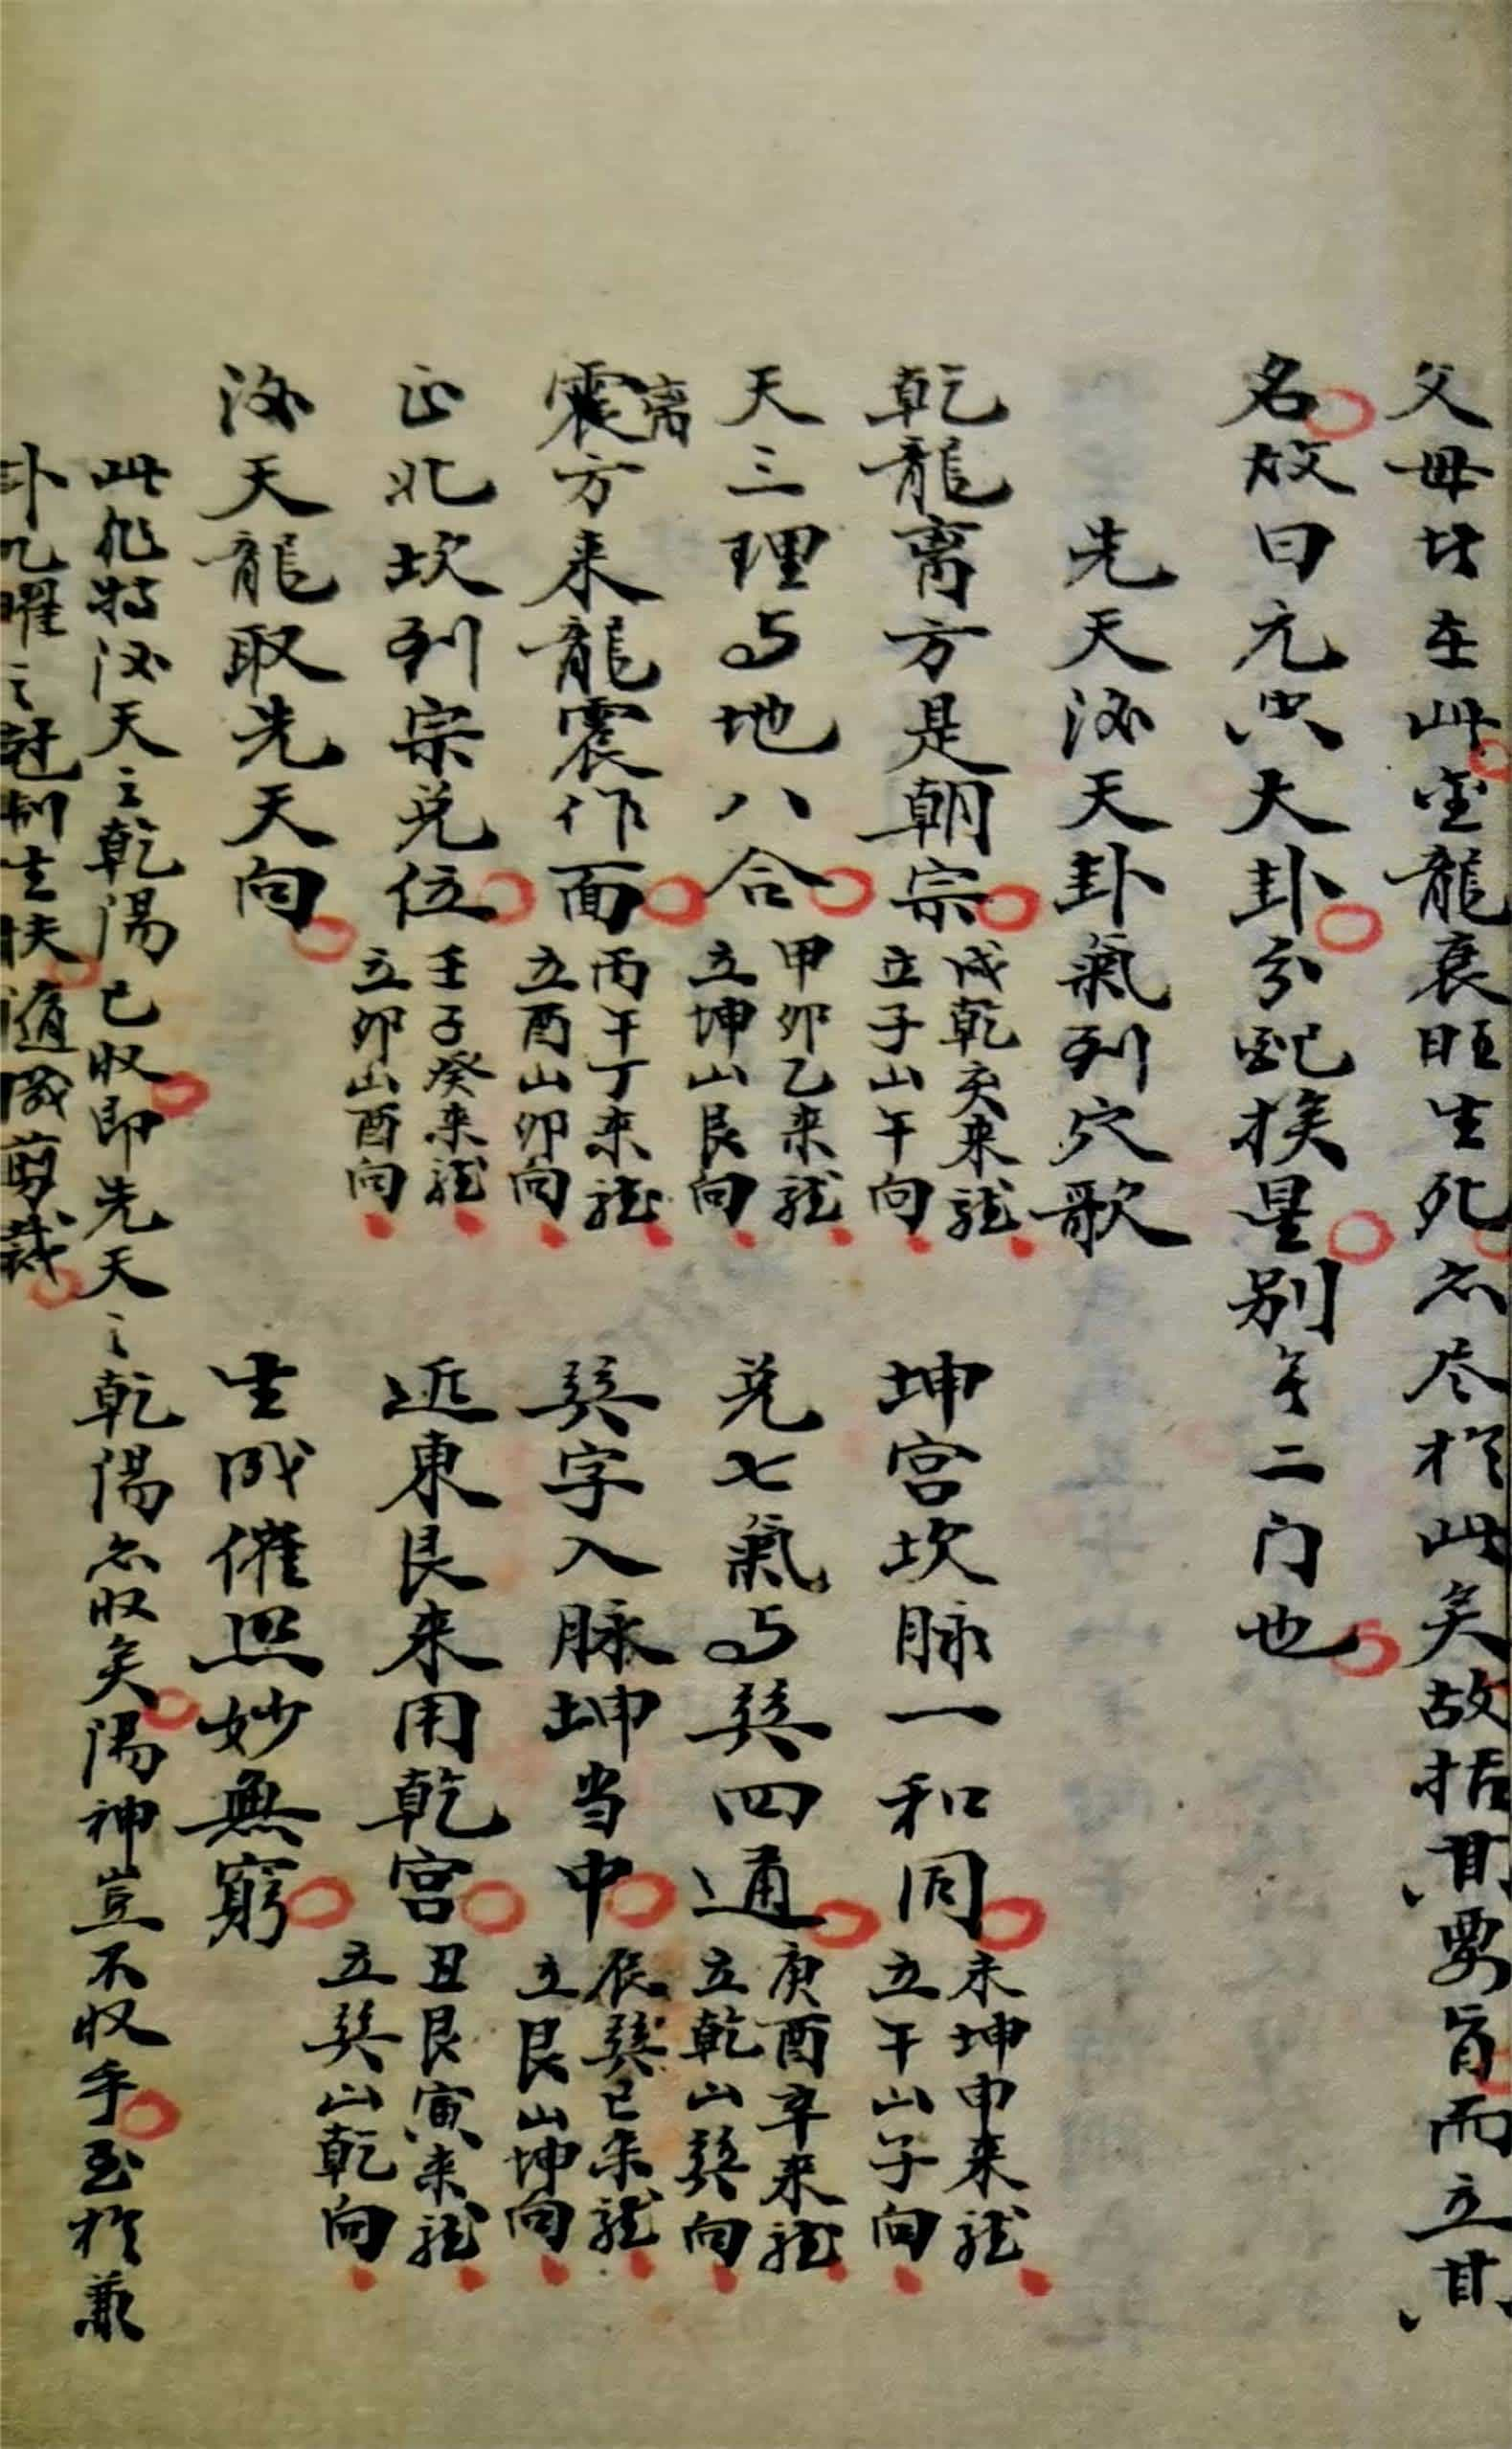 父母皆在此金龍衰旺生死亦尽於此矣故括其要旨而立其
名故曰元空大卦分配挨星别无二门也
先天后天卦氣列穴歌
乾龍离方是朝宗 戌乾亥来龍 立子山午向 坤宫坎脉一和同 未坤申来龍 立午山子向
天三理与地八合 甲卯乙来龍 立坤山艮向 兑七氣与巽四通 庚酉辛来龍 立乾山巽向
震离方来龍震作面 丙午丁来龍 立酉山卯向 巽字入脉坤当中 辰巽巳来龍 立艮山坤向
正北坎列宗兑位 壬子癸来龍 立卯山酉向 近東艮来用乾宫 丑艮寅来龍 立巽山乾向
后天龍取先天向 生成催照妙無窮
此非特后天之乾陽已收即先天之乾陽亦收矣陽神豈不收乎至於兼
卦九曜之剋制生扶随城剪裁